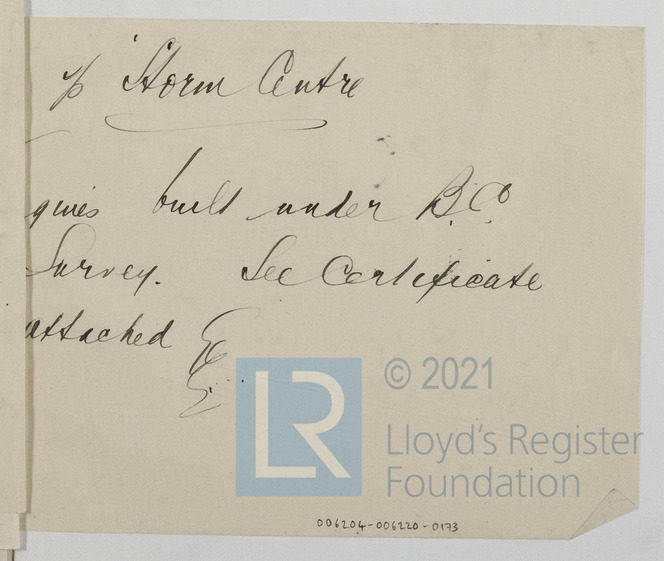 'Storm Centre
gines built under B.C.
Survey. See Certificate
attached
LR
© 2021
Lloyd's Register
Foundation
006204-006220-0173